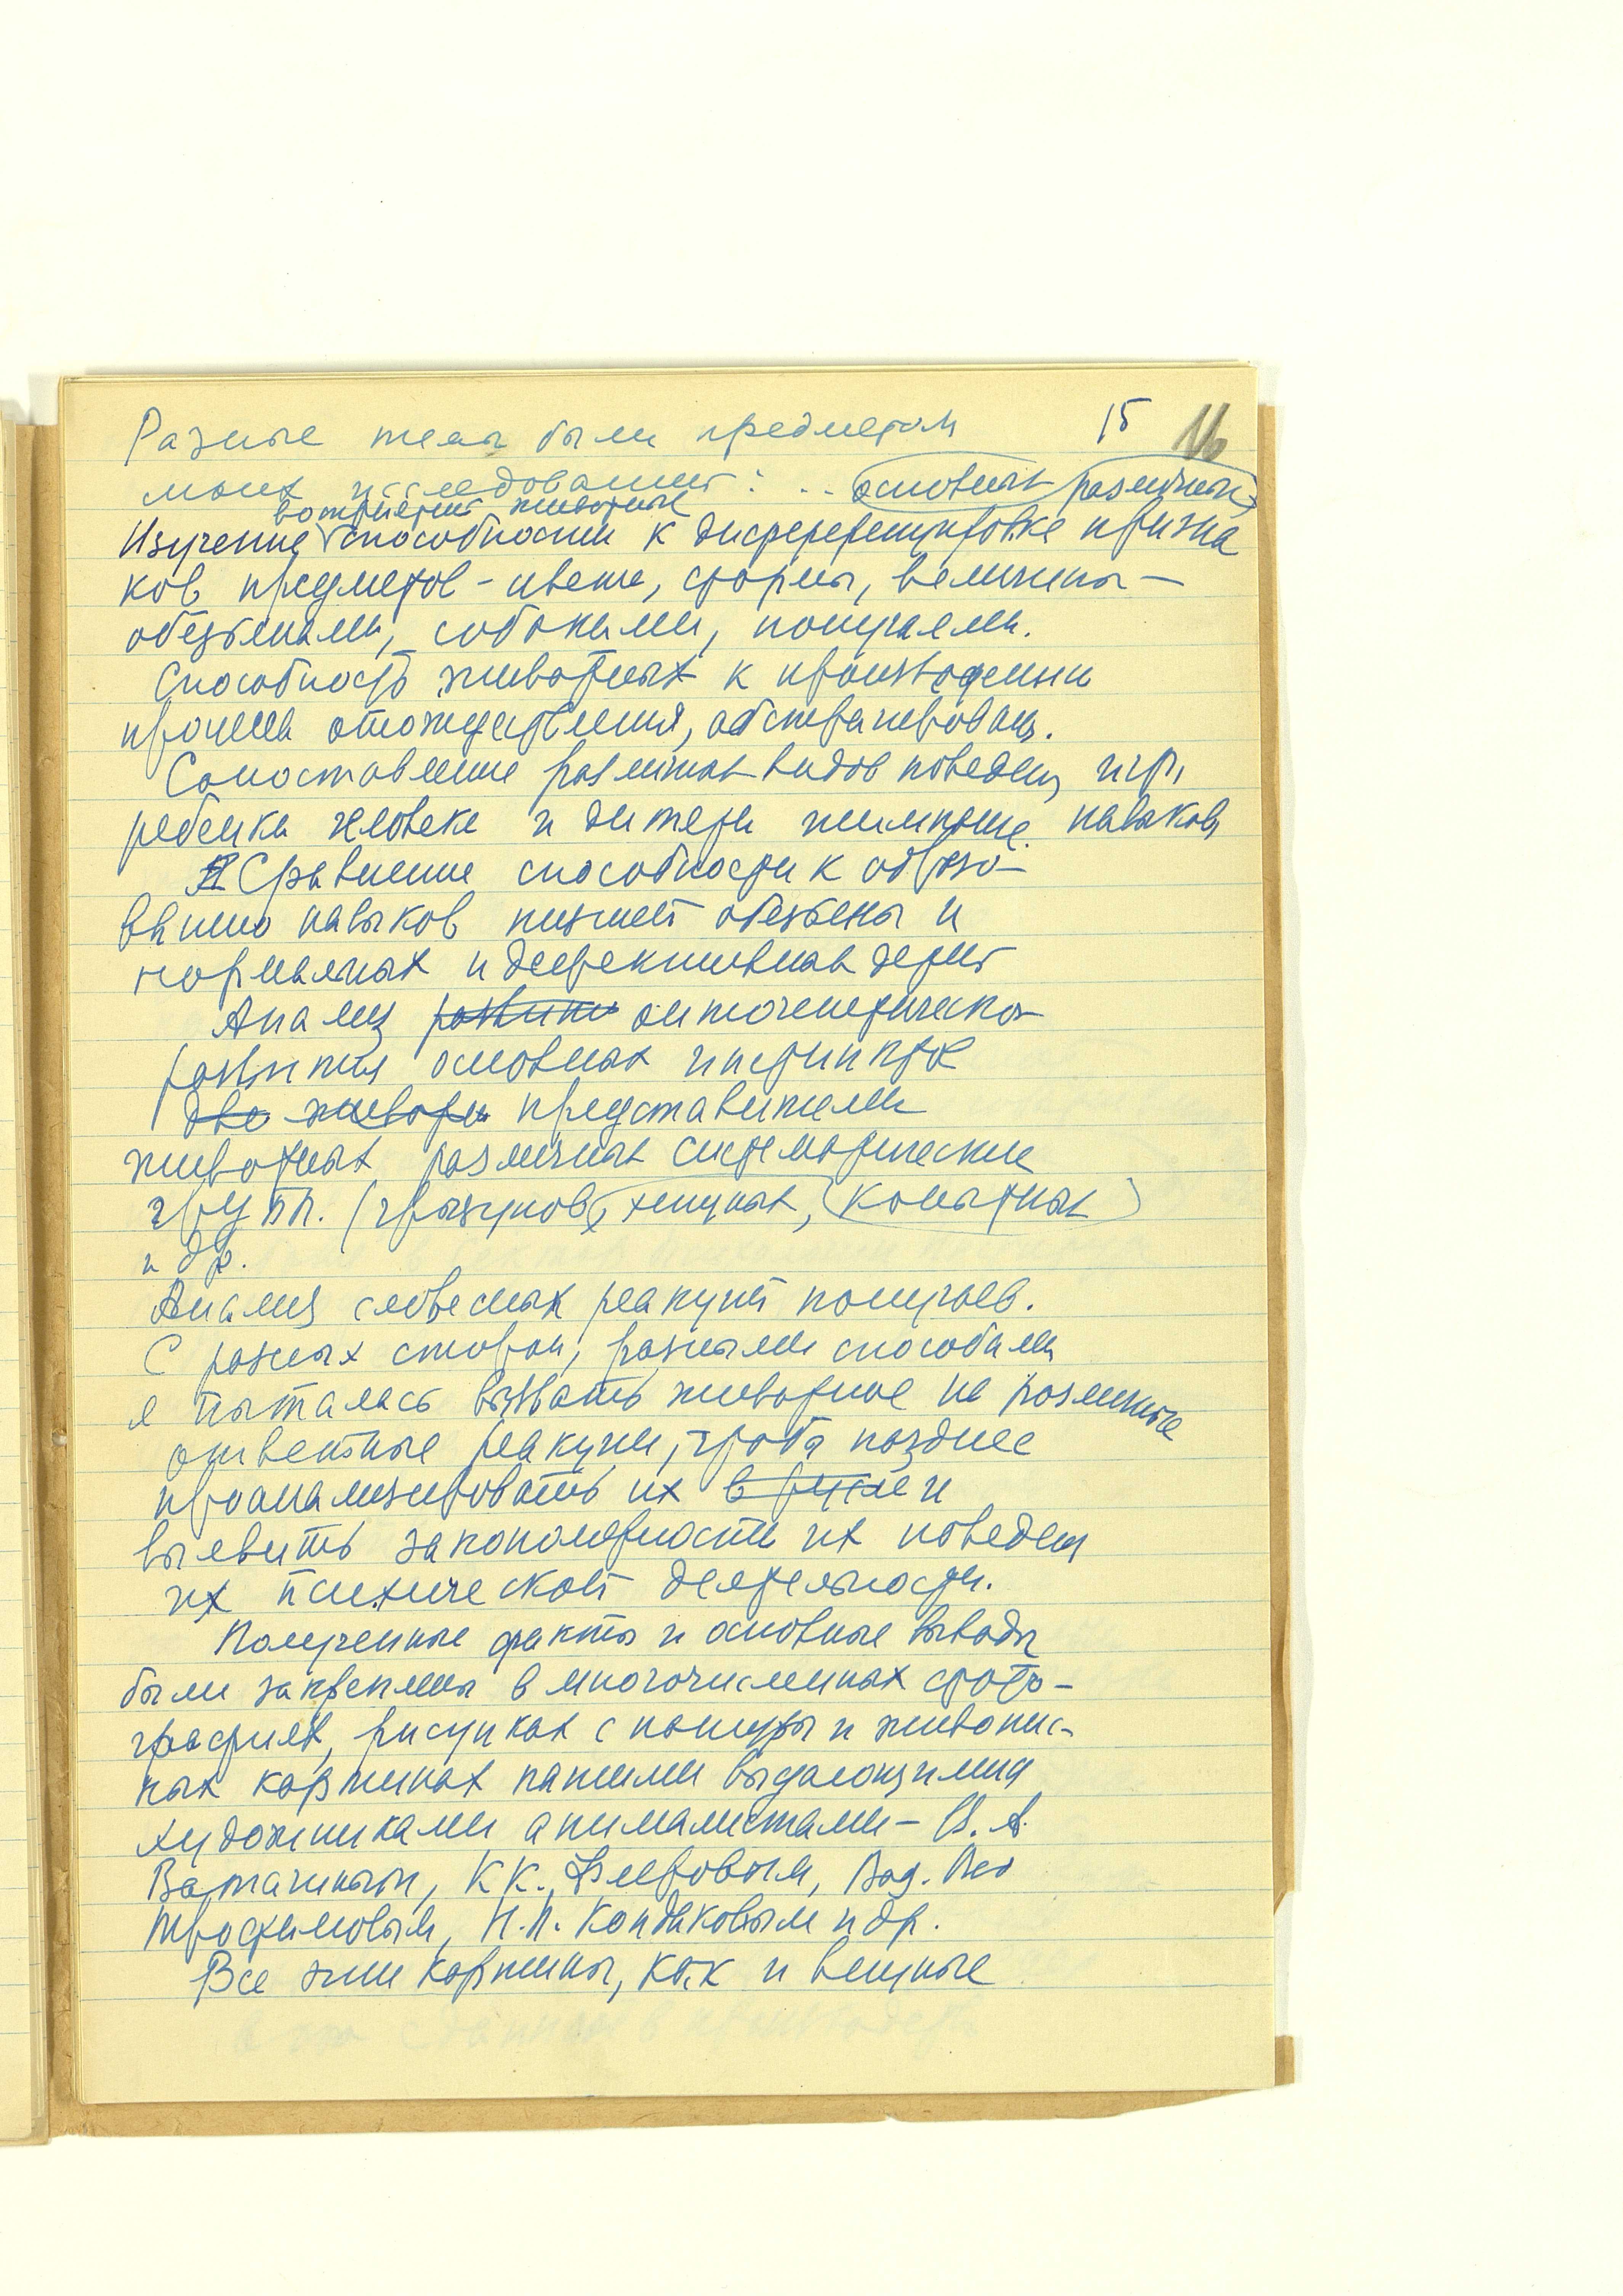 15 16
Разные темы были предметом
моих исследований: .. основных различных
восприятия животные
Изучение способности к дисференцировке призна
ков предметов - цвета, формы, величины —
обезьянами, собаками, попугаями.
Способность животных к произведению
процесса отождествления, абстрагирования.
Сопоставление различных видов поведен, игр,
ребенка человека и дитяти шимпанзе. навыков
Сравнение способности к образо-
ванию навыков низшей обезьяны и
нормальных и дефективных детей
Анализ развития онтогенетическо
развития основных инстинктов
два животн представителей
животных различных систематических
групп. (грызунов, хищных, копытных)
и др.
Анализ словесных реакций попугаев.
С разных сторон, разными способами
я пыталась вызвать животное на различные
ответные реакции, чтобы позднее
проанализировать их и
выявить закономерности их поведен
их психической деятельности.
Полученные факты и основные выводы
были закреплены в многочисленных фото-
графиях, рисунках с натуры и живопис-
ных картинах нашими выдающимися
художниками анималистами — В. А.
Ватагиным, К К. Флеровым, Вад.
Трофимовым, Н. Н. Кондаковым и др.
Все эти картины, как и вещные